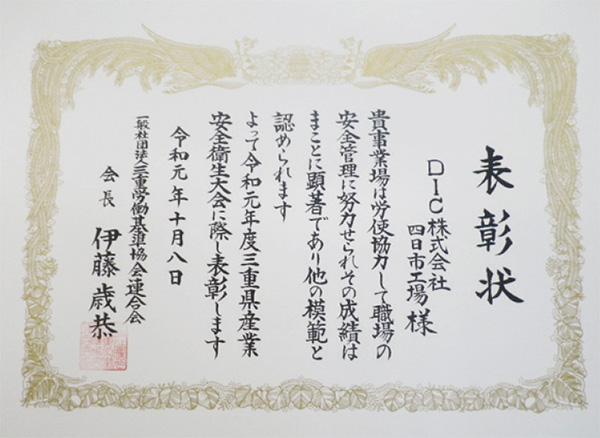 表彰状
DIC株式会社
四日市工場 様
貴事業場は労使協力して職場の
安全管理に努力せられその成績は
まことに顕著であり他の模範と
認められます
よって令和元年度三重県産業
安全衛生大会に際し表彰します
令和元年十月八日
一般社団法人三重労働基準協会連合会
会長 伊藤歳恭